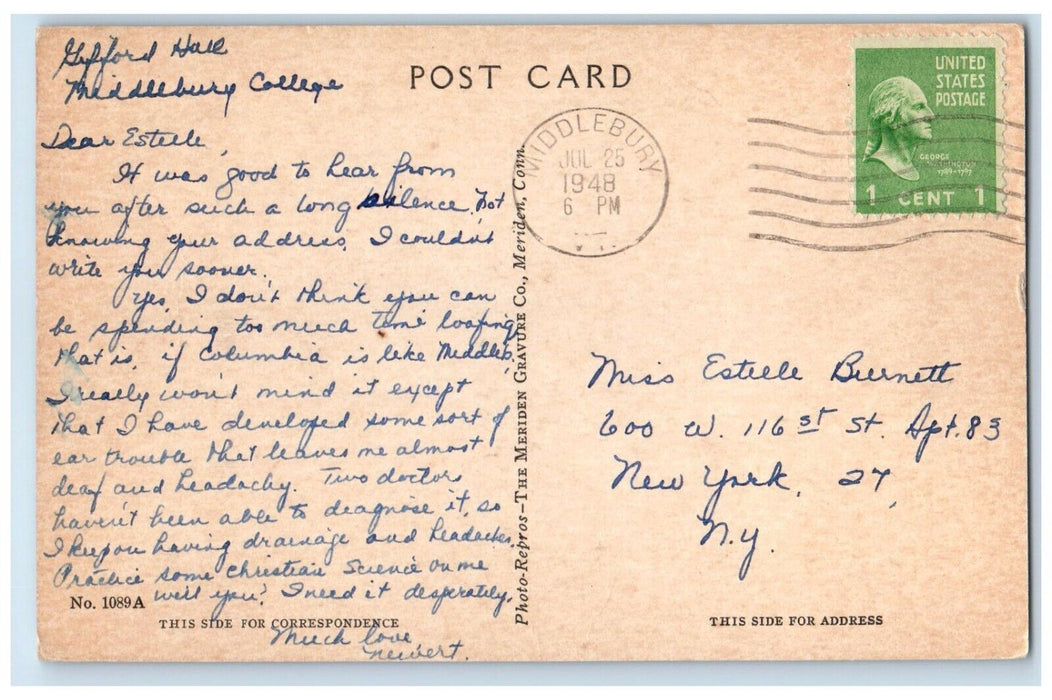 Gifford Hall
Middlebury College
POST CARD
Dear Estelle,
It was good to hear from
you after such a long silence. Not
knowing your address, I couldn't
write you sooner.
Yes, I don't think you can
be spending too much time loafing,
that is, if Columbia is like Middleb.
I really won't mind it except
that I have developed some sort of
ear trouble that leaves me almost
deaf and headachy. Two doctors
haven't been able to diagnose it, so
I keep on having drainage and headaches.
Practice some Christian Science on me
will you? I need it desperately.
Much love
No. 1089A
THIS SIDE FOR CORRESPONDENCE
Photo-Repros-THE MERIDEN GRAVURE Co., Meriden, Conn.
MIDDLEBURY
JUL 25
1948
6 PM
VT.
UNITED
STATES
POSTAGE
GEORGE
WASHINGTON
1789-1797
1 CENT 1
Miss Estelle Burnett
600 W. 116 st St. Apt. 83
New York, 27,
N.Y.
THIS SIDE FOR ADDRESS